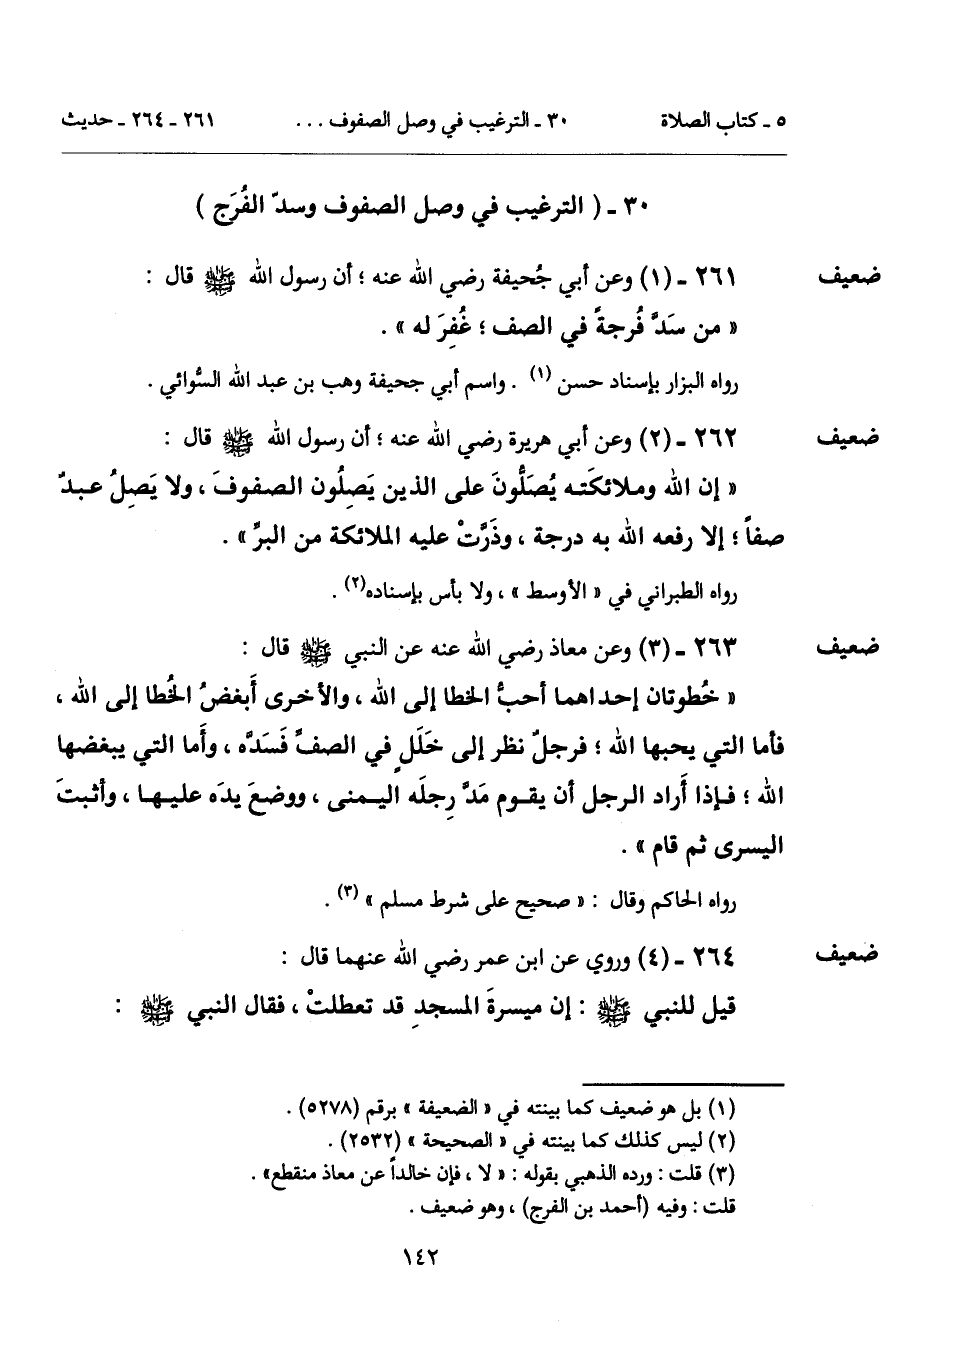 ٥ ـ كتاب الصلاة ٣٠ ـ الترغيب في وصل الصفوف . . . ٢٦١ ـ ٢٦٤ ـ حديث
٣٠ ـ ( الترغيب في وصل الصفوف وسدّ الفُرَج )
ضعيف ٢٦١ ـ (١) وعن أبي جُحيفة رضي الله عنه ؛ أن رسول الله ﷺ قال :
« من سَدَّ فُرجةً في الصف ؛ غُفِرَ له » .
رواه البزار بإسناد حسن (١) . واسم أبي جحيفة وهب بن عبد الله السُّوائي .
ضعيف ٢٦٢ ـ (٢) وعن أبي هريرة رضي الله عنه ؛ أن رسول الله ﷺ قال :
« إن الله وملائكتَه يُصَلُّونَ على الذين يَصِلُون الصفوفَ ، ولا يَصِلُ عبدٌ
صفاً ؛ إلا رفعه الله به درجة ، وذَرَّتْ عليه الملائكة من البرِّ » .
رواه الطبراني في « الأوسط » ، ولا بأس بإسناده(٢) .
ضعيف ٢٦٣ ـ (٣) وعن معاذ رضي الله عنه عن النبي ﷺ قال :
« خُطوتان إحداهما أحبُّ الخطا إلى الله ، والأخرى أَبغضُ الخُطا إلى الله ،
فأما التي يحبها الله ؛ فرجلٌ نظر إلى خَلَلٍ في الصفِّ فَسَدَّه ، وأَما التي يبغضها
الله ؛ فإذا أَراد الرجل أن يقوم مَدَّ رِجلَه اليمنى ، ووضعَ يدَه عليها ، وأثبتَ
اليسرى ثم قام » .
رواه الحاكم وقال : « صحيح على شرط مسلم » (٣) .
ضعيف ٢٦٤ ـ (٤) وروي عن ابن عمر رضي الله عنهما قال :
قيل للنبي ﷺ : إن ميسرةَ المسجدِ قد تعطلتْ ، فقال النبي ﷺ :
(١) بل هو ضعيف كما بينته في « الضعيفة » برقم (٥٢٧٨) .
(٢) ليس كذلك كما بينته في « الصحيحة » (٢٥٣٢) .
(٣) قلت : ورده الذهبي بقوله : « لا ، فإن خالداً عن معاذ منقطع» .
قلت : وفيه (أحمد بن الفرج) ، وهو ضعيف .
١٤٢